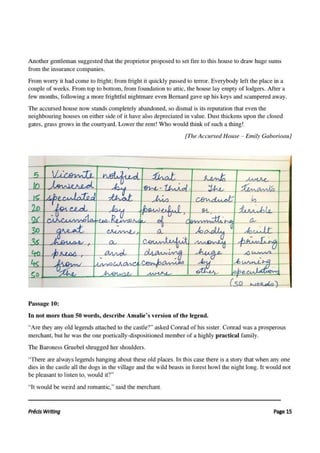 Another gentleman suggested that the proprietor proposed to set fire to this house to draw huge sums
from the insurance companies.
From worry it had come to fright; from fright it quickly passed to terror. Everybody left the place in a
couple of weeks. From top to bottom, from foundation to attic, the house lay empty of lodgers. After a
few months, following a more frightful nightmare even Bernard gave up his keys and scampered away.
The accursed house now stands completely abandoned, so dismal is its reputation that even the
neighbouring houses on either side of it have also depreciated in value. Dust thickens upon the closed
gates, grass grows in the courtyard. Lower the rent! Who would think of such a thing!
[The Accursed House – Emily Gaboriean]
5 Vicomte notified that rents were
10 lowered by one-third. The tenants
15 speculated that his conduct is
20 forced by powerful, or terrible
25 circumstances. Remorse of committing a
30 great crime, a badly built
35 house, a counterfeit money printing
40 press, and drawing huge sums
45 from insurance companies by burning
50 the house were other speculations
(50 words)
Passage 10:
In not more than 50 words, describe Amalie's version of the legend.
“Are they any old legends attached to the castle?” asked Conrad of his sister. Conrad was a prosperous
merchant, but he was the one poetically-dispositioned member of a highly practical family.
The Baroness Gruebel shrugged her shoulders.
“There are always legends hanging about these old places. In this case there is a story that when any one
dies in the castle all the dogs in the village and the wild beasts in forest howl the night long. It would not
be pleasant to listen to, would it?”
“It would be weird and romantic,” said the merchant.
Précis Writing Page 15